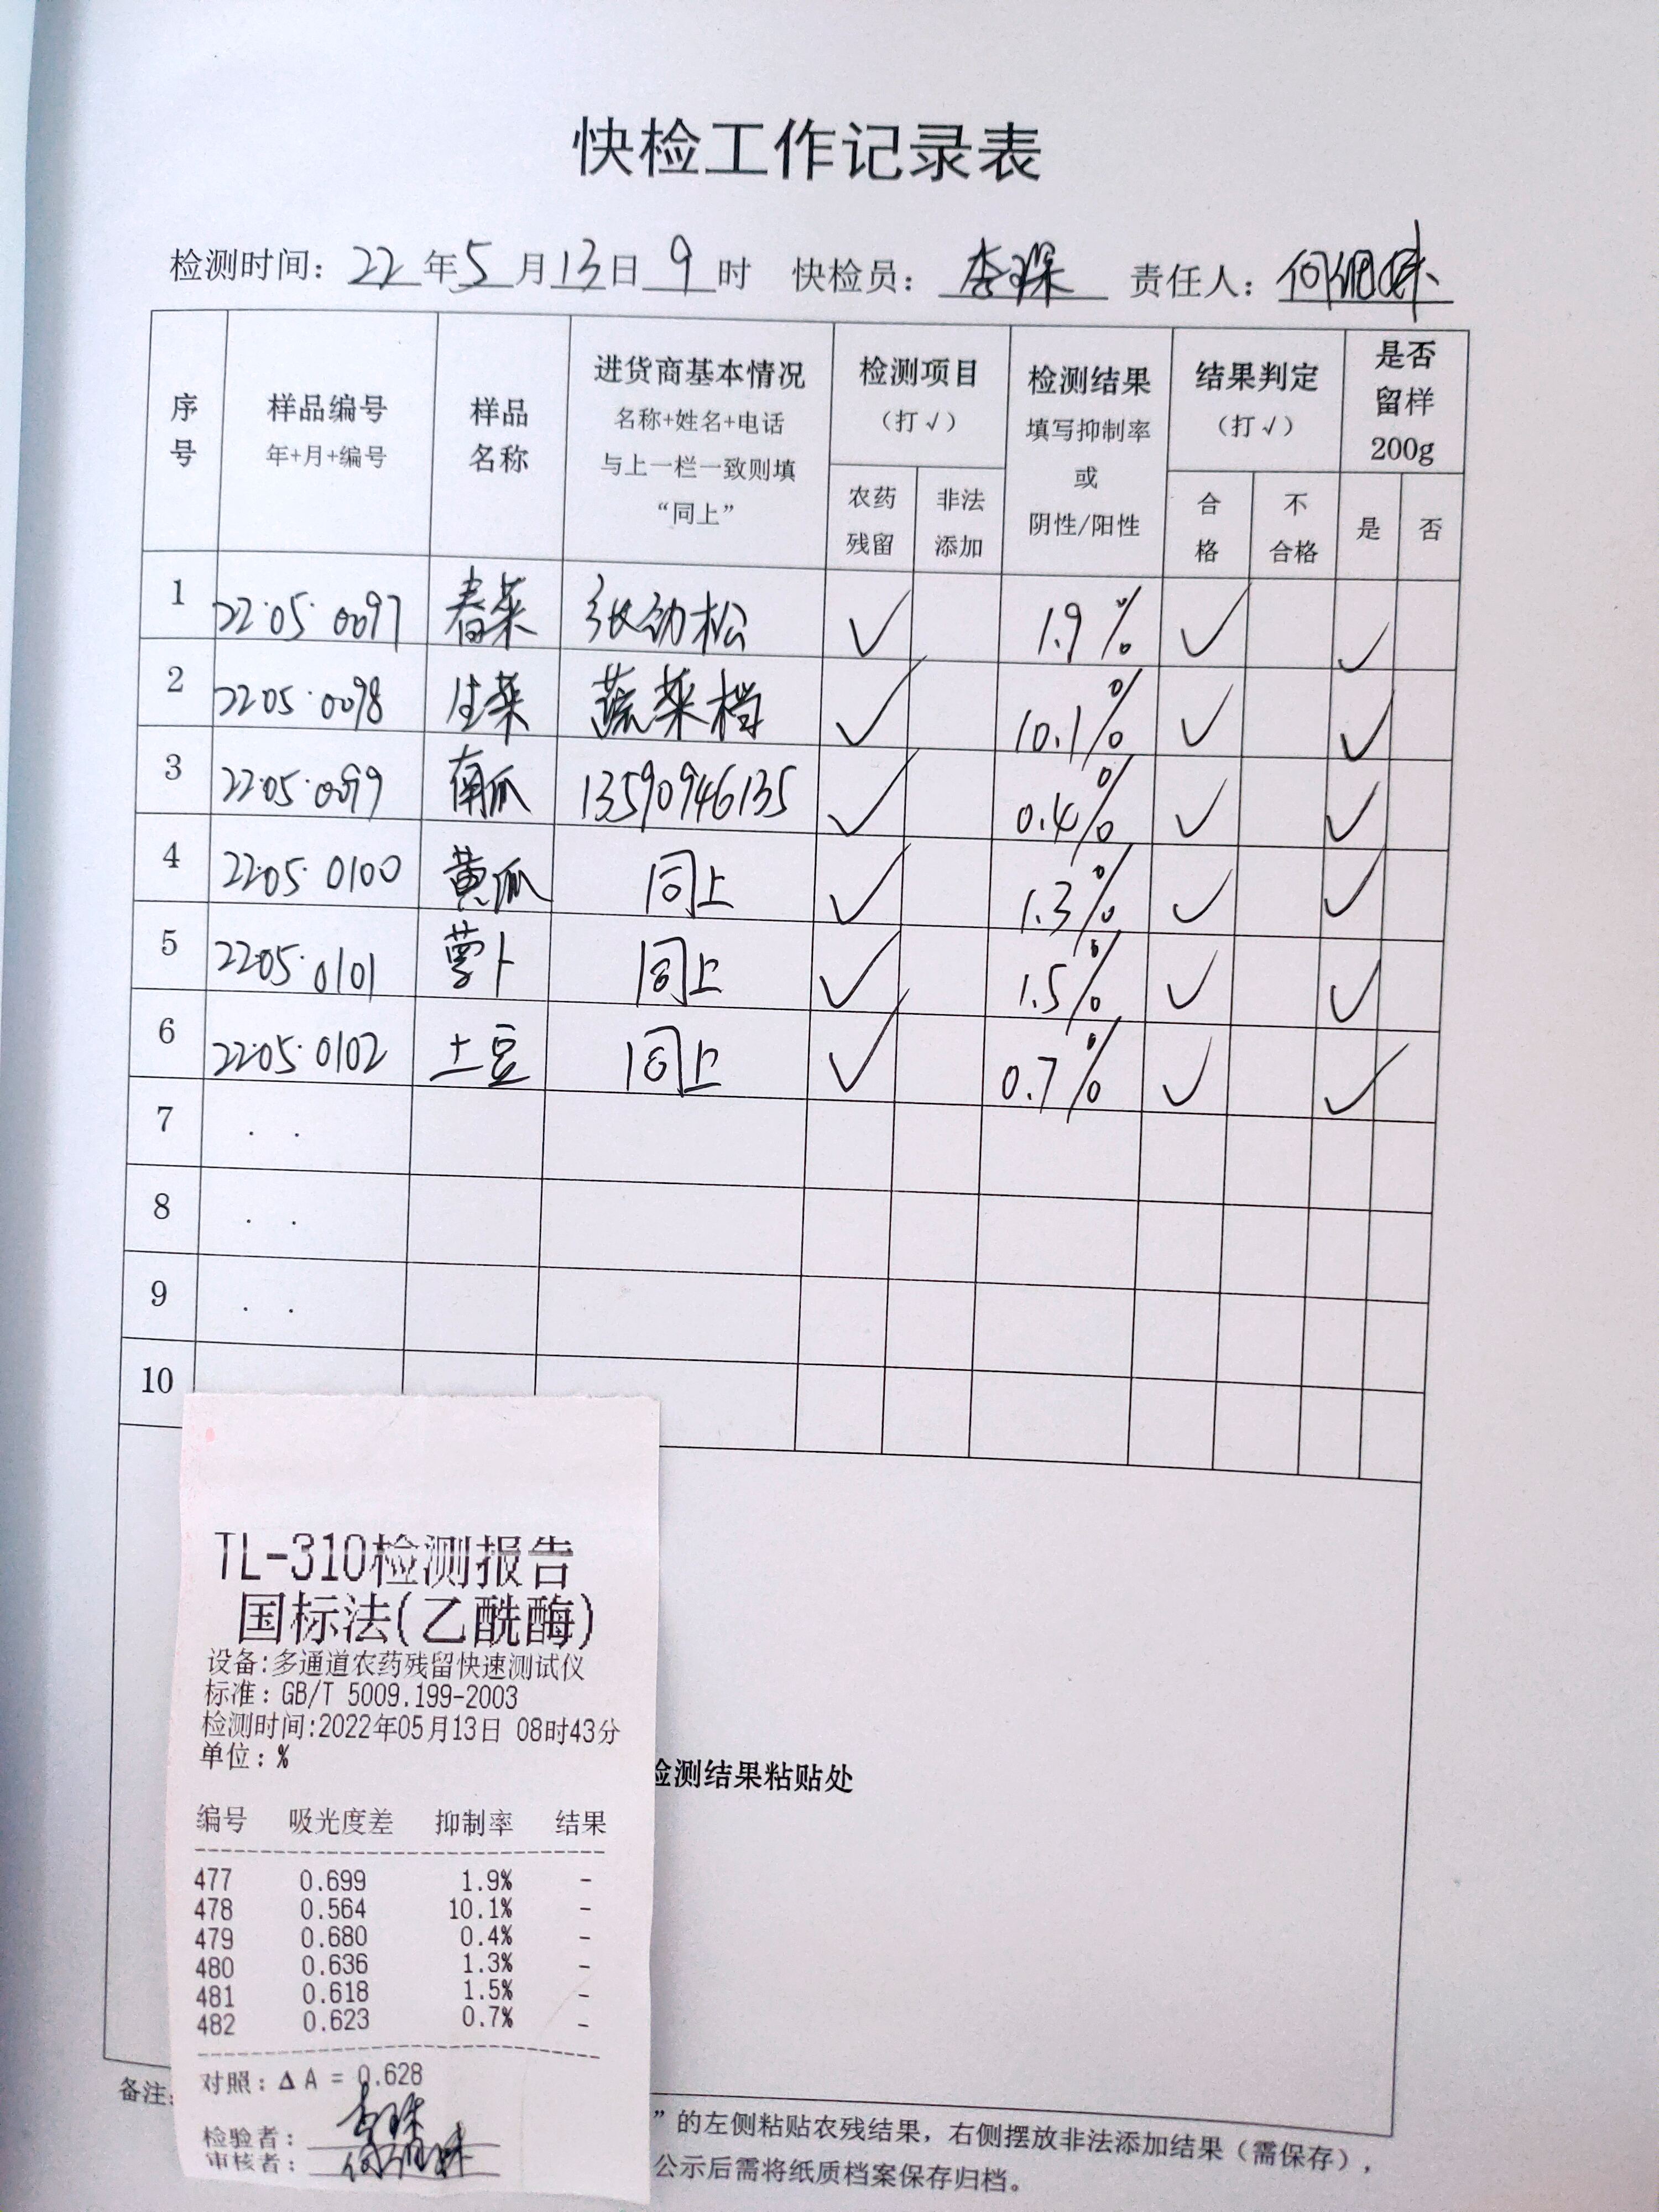 快检工作记录表
检测时间：22年5月13日9时 快检员： 责任人：
序号 样品编号 年+月+编号 样品名称 进货商基本情况 名称+姓名+电话 与上一栏一致则填“同上” 检测项目（打√） 农药残留 非法添加 检测结果 填写抑制率或阴性/阳性 结果判定（打√） 合格 不合格 是否留样200g 是 否
1 22·05·0097 春菜 张劲松 √ 1.9% √ √
2 22·05·0098 生菜 蔬菜档 √ 10.1% √ √
3 22·05·0099 南瓜 13590946135 √ 0.4% √ √
4 22·05·0100 黄瓜 同上 √ 1.3% √ √
5 22·05·0101 萝卜 同上 √ 1.5% √ √
6 22·05·0102 土豆 同上 √ 0.7% √ √
7 · ·
8 · ·
9 · ·
10
TL-310检测报告
国标法(乙酰酶)
设备:多通道农药残留快速测试仪
标准：GB/T 5009.199-2003
检测时间:2022年05月13日 08时43分
单位：%
检测结果粘贴处
编号 吸光度差 抑制率 结果
477 0.699 1.9% -
478 0.564 10.1% -
479 0.680 0.4% -
480 0.636 1.3% -
481 0.618 1.5% -
482 0.623 0.7% -
对照：Δ A = 0.628
检验者：
审核者：
备注： ”的左侧粘贴农残结果，右侧摆放非法添加结果（需保存），
公示后需将纸质档案保存归档。